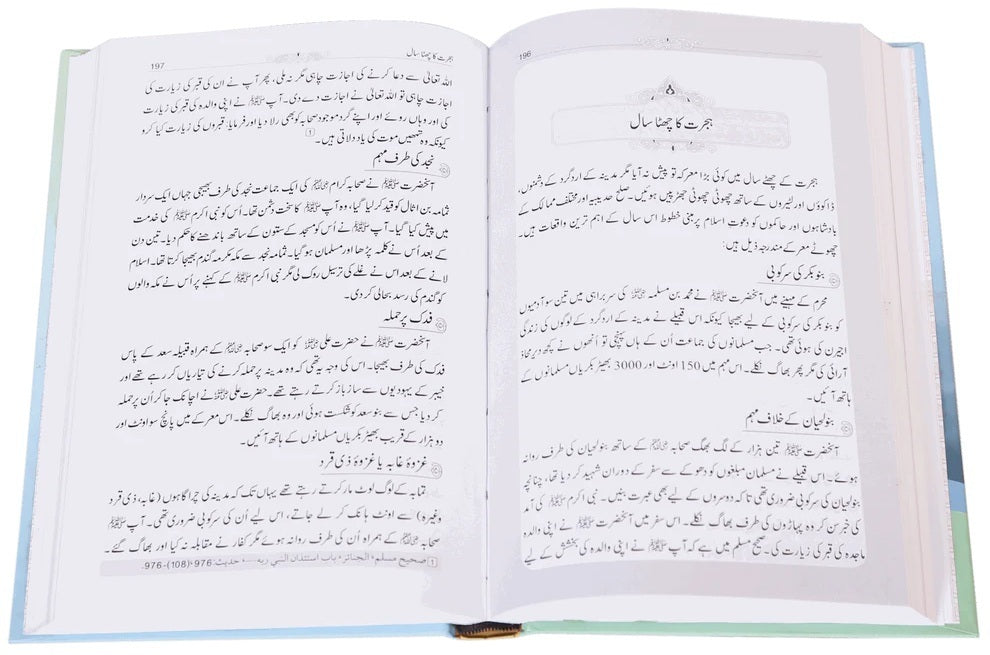 196
ہجرت کا چھٹا سال
ہجرت کے چھٹے سال میں کوئی بڑا معرکہ تو پیش نہ آیا مگر مدینہ کے اردگرد کے دشمنوں،
ڈاکوؤں اور لٹیروں کے ساتھ چھوٹی چھوٹی جھڑپیں ہوئیں۔ صلح حدیبیہ اور مختلف ممالک کے
بادشاہوں اور حاکموں کو دعوتِ اسلام پر مبنی خطوط اس سال کے اہم ترین واقعات ہیں۔
چھوٹے معرکے مندرجہ ذیل ہیں:
بنوبکر کی سرکوبی
محرم کے مہینے میں آنحضرت ﷺ نے محمد بن مسلمہ رضی اللہ عنہ کی سربراہی میں تین سو آدمیوں
کو بنوبکر کی سرکوبی کے لیے بھیجا کیونکہ اس قبیلے نے مدینہ کے اردگرد کے لوگوں کی زندگی
اجیرن کی ہوئی تھی۔ جب مسلمانوں کی جماعت اُن کے ہاں پہنچی تو اُنھوں نے کچھ دیر محاذ
آرائی کی مگر پھر بھاگ نکلے۔ اس مہم میں 150 اونٹ اور 3000 بھیڑ بکریاں مسلمانوں کے
ہاتھ آئیں۔
بنولحیان کے خلاف مہم
آنحضرت ﷺ تین ہزار کے لگ بھگ صحابہ رضی اللہ عنہم کے ساتھ بنولحیان کی طرف روانہ
ہوئے۔ اس قبیلے نے مسلمان مبلغوں کو دھوکے سے سفر کے دوران شہید کر دیا تھا، چنانچہ
بنولحیان کی سرکوبی ضروری تھی تاکہ دوسروں کے لیے بھی عبرت بنیں۔ نبی اکرم ﷺ کی آمد
کی خبر سن کر وہ پہاڑوں کی طرف بھاگ نکلے۔ اس سفر میں آنحضرت ﷺ نے اپنی والدہ
ماجدہ کی قبر کی زیارت کی۔ صحیح مسلم میں ہے کہ آپ ﷺ نے اپنی والدہ کی بخشش کے لیے
ہجرت کا چھٹا سال
197
اللہ تعالیٰ سے دعا کرنے کی اجازت چاہی مگر نہ ملی، پھر آپ نے ان کی قبر کی زیارت کی
اجازت چاہی تو اللہ تعالیٰ نے اجازت دے دی۔ آپ ﷺ نے اپنی والدہ کی قبر کی زیارت
کی اور وہاں روئے اور اپنے گرد موجود صحابہ کو بھی رلا دیا اور فرمایا: قبروں کی زیارت کیا کرو
کیونکہ وہ تمھیں موت کی یاد دلاتی ہیں۔ 1
نجد کی طرف مہم
آنحضرت ﷺ نے صحابہ کرام رضی اللہ عنہم کی ایک جماعت نجد کی طرف بھیجی جہاں ایک سردار
ثمامہ بن اثال کو قید کر لیا گیا، وہ آپ ﷺ کا سخت دشمن تھا۔ اُس کو نبی اکرم ﷺ کی خدمت
میں پیش کیا گیا۔ آپ ﷺ نے اُس کو مسجد کے ستون کے ساتھ باندھنے کا حکم دیا۔ تین دن
کے بعد اُس نے کلمہ پڑھا اور مسلمان ہو گیا۔ ثمامہ نجد سے مکہ مکرمہ گندم بھیجا کرتا تھا۔ اسلام
لانے کے بعد اس نے غلے کی ترسیل روک لی مگر نبی اکرم ﷺ کے کہنے پر اُس نے مکہ والوں
کو گندم کی رسد بحال کر دی۔
فدک پر حملہ
آنحضرت ﷺ نے حضرت علی رضی اللہ عنہ کو ایک سو صحابہ رضی اللہ عنہم کے ہمراہ قبیلہ سعد کے پاس
فدک کی طرف بھیجا۔ اس کی وجہ یہ تھی کہ وہ مدینہ پر حملہ کرنے کی تیاریاں کر رہے تھے اور
خیبر کے یہودیوں سے ساز باز کرتے رہے تھے۔ حضرت علی رضی اللہ عنہ نے اچانک جا کر اُن پر حملہ
کر دیا جس سے بنو سعد کو شکست ہوئی اور وہ بھاگ نکلے۔ اس معرکے میں پانچ سو اونٹ اور
دو ہزار کے قریب بھیڑ بکریاں مسلمانوں کے ہاتھ آئیں۔
غزوۂ غابہ یا غزوۂ ذی قرد
تمابہ کے لوگ لوٹ مار کرتے رہتے تھے یہاں تک کہ مدینہ کی چراگاہوں (غابہ، ذی قرد
وغیرہ) سے اونٹ ہانک کر لے جاتے، اس لیے اُن کی سرکوبی ضروری تھی۔ آپ ﷺ
صحابہ رضی اللہ عنہم کے ہمراہ اُن کی طرف روانہ ہوئے مگر کفار نے مقابلہ نہ کیا اور بھاگ گئے۔
1 صحیح مسلم، الجنائز، باب استئذان النبي ربه .... حدیث: 976، (108)-976.